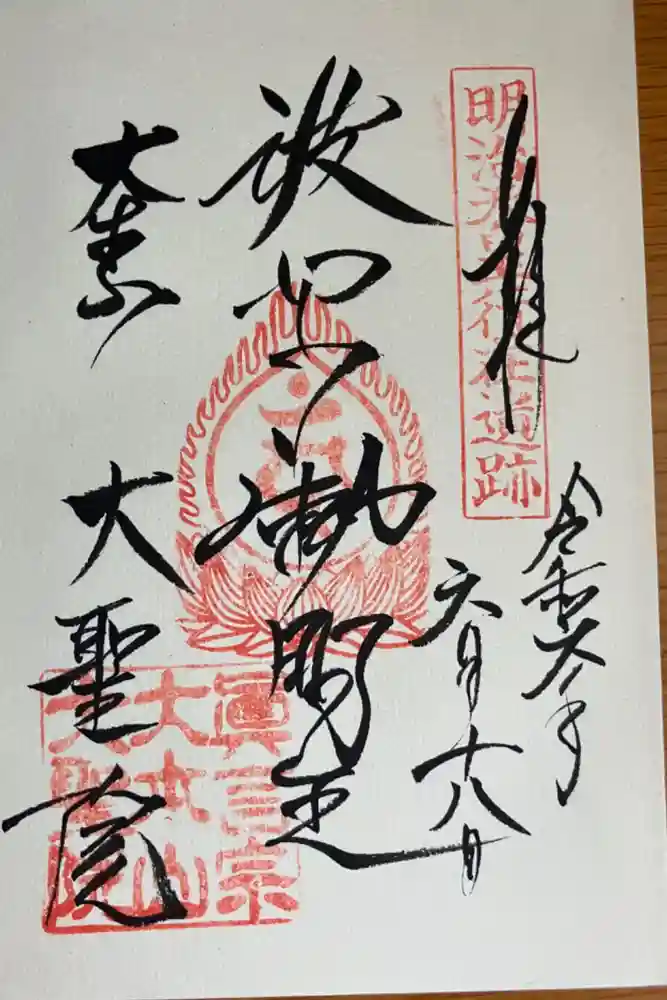 明治天皇行在遺跡
奉拝
令和六年
六月十八日
波切不動明王
大聖院
眞言宗
大本山
大聖院